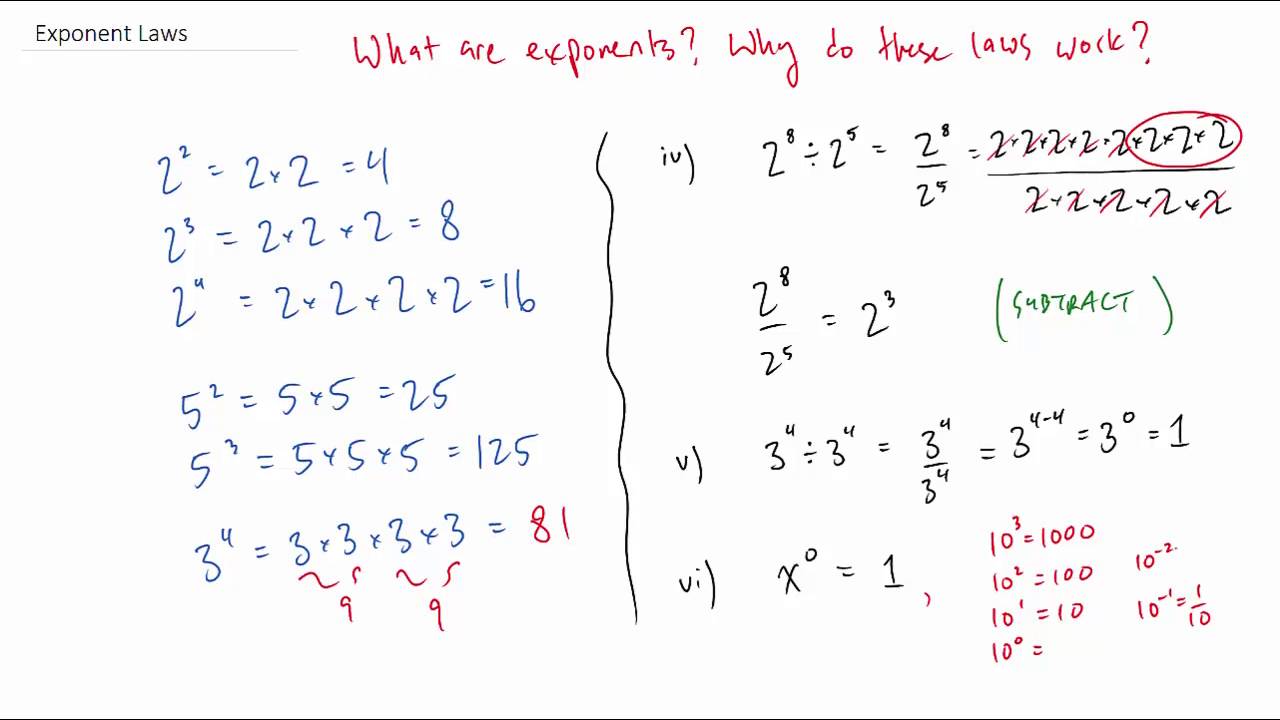 Exponent Laws
What are exponents? Why do these laws work?
2² = 2 × 2 = 4
2³ = 2 × 2 × 2 = 8
2⁴ = 2 × 2 × 2 × 2 = 16
5² = 5 × 5 = 25
5³ = 5 × 5 × 5 = 125
3⁴ = 3 × 3 × 3 × 3 = 81
9 9
iv) 2⁸ ÷ 2⁵ = 2⁸/2⁵ = 2 × 2 × 2 × 2 × 2 × 2 × 2 × 2 / 2 × 2 × 2 × 2 × 2
2⁸/2⁵ = 2³ (SUBTRACT)
v) 3⁴ ÷ 3⁴ = 3⁴/3⁴ = 3⁴⁻⁴ = 3⁰ = 1
vi) x⁰ = 1 ,
10³ = 1000
10² = 100
10¹ = 10
10⁰ =
10⁻²
10⁻¹ = 1/10